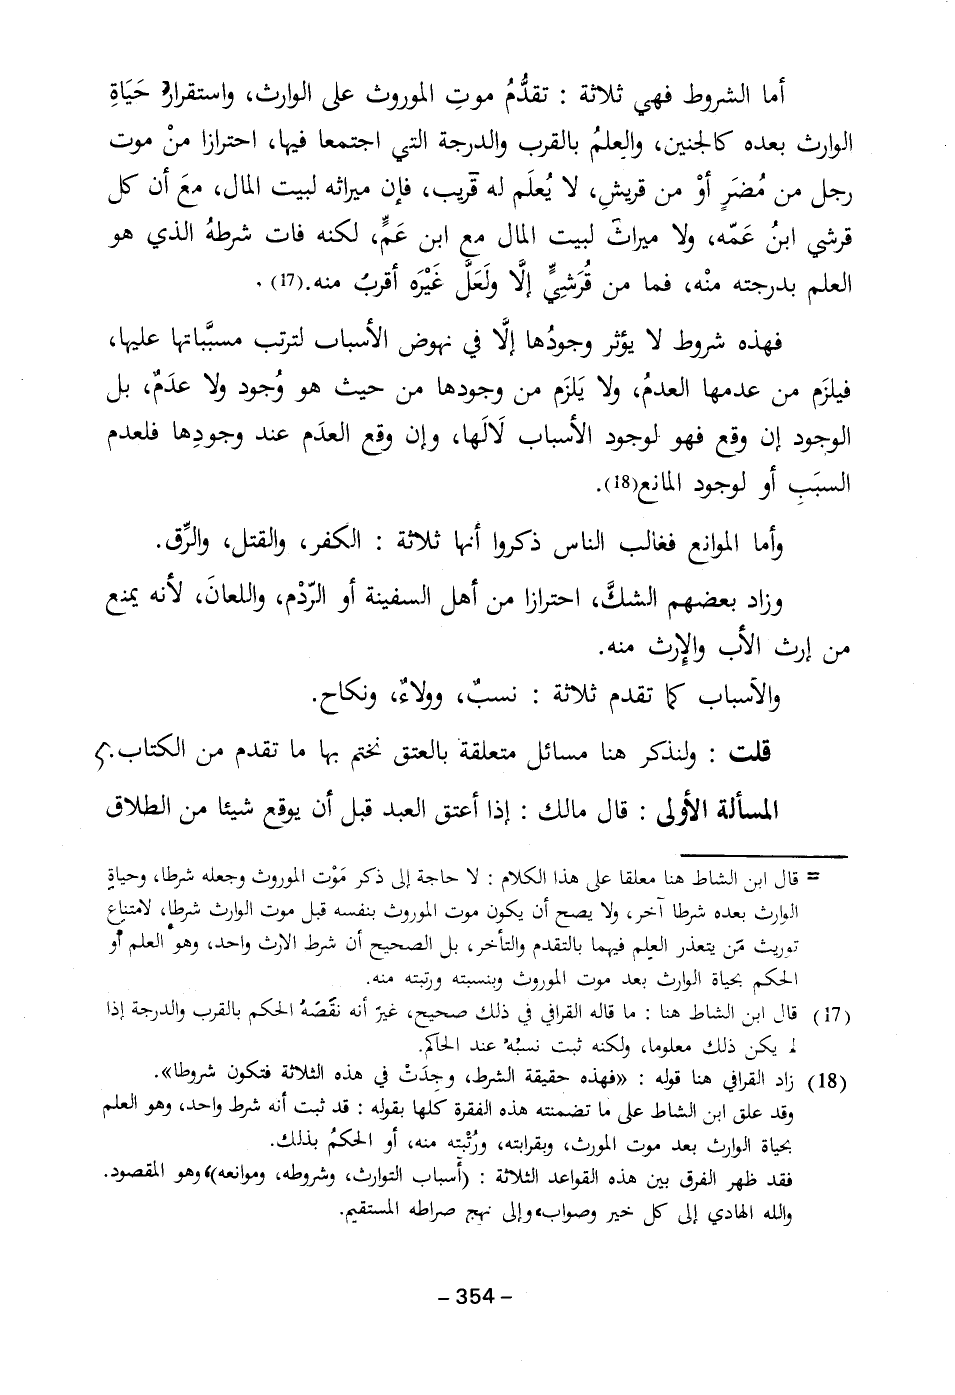 أما الشروط فهي ثلاثة : تقدُّمُ موتِ الموروث على الوارث، واستقرارُ حَيَاةِ
الوارث بعده كالجنين، والعِلمُ بالقرب والدرجة التي اجتمعا فيها، احترازا منْ موت
رجل من مُضَرٍ أوْ من قريشٍ، لا يُعلَم له قَريب، فإن ميراثه لبيت المال، معَ أن كل
قرشي ابنُ عَمّه، ولا ميراثَ لبيت المال مع ابن عَمٍّ، لكنه فات شرطهُ الذي هو
العلم بدرجته منْه، فما من قُرَشِيٍّ إلَّا ولَعَلَّ غَيْرَه أقربُ منه.(17) .
فهذه شروط لا يؤثر وجودُها إلَّا في نهوض الأسباب لترتب مسبَّباتها عليها،
فيلزَم من عدمها العدمُ، ولا يَلزَم من وجودها من حيث هو وُجود ولا عدَمٌ، بل
الوجود إن وقع فهو لوجود الأسباب لَالَها، وإن وقع العدَم عند وجودِها فلعدم
السبَبِ أو لوجود المانع(18).
وأما الموانع فغالب الناس ذكروا أنها ثلاثة : الكفر، والقتل، والرِّق.
وزاد بعضهم الشكَّ، احترازا من أهل السفينة أو الرّدْم، واللعانَ، لأنه يمنع
من إرث الأب والإرث منه.
والأسباب كما تقدم ثلاثة : نسبٌ، وولاءٌ، ونكاح.
قلت : ولنذكر هنا مسائل متعلقة بالعتق نختم بها ما تقدم من الكتاب.
المسألة الأولى : قال مالك : إذا أعتق العبد قبل أن يوقع شيئا من الطلاق
= قال ابن الشاط هنا معلقا على هذا الكلام : لا حاجة إلى ذكر مَوْت الموروث وجعله شرطا، وحياةِ
الوارث بعده شرطا آخر، ولا يصح أن يكون موت الموروث بنفسه قبل موت الوارث شرطا، لامتناع
توريث مَن يتعذر العلم فيهما بالتقدم والتأخر، بل الصحيح أن شرط الارث واحد، وهو العلم أو
الحكم بحياة الوارث بعد موت الموروث وبنسبته ورتبته منه.
(17) قال ابن الشاط هنا : ما قاله القرافي في ذلك صحيح، غيرَ أنه نقَصَهُ الحكم بالقرب والدرجة إذا
لم يكن ذلك معلوما، ولكنه ثبت نسبُه عند الحاكم.
(18) زاد القرافي هنا قوله : «فهذه حقيقة الشرط، وجِدَتْ في هذه الثلاثة فتكون شروطا».
وقد علق ابن الشاط على ما تضمنته هذه الفقرة كلها بقوله : قد ثبت أنه شرط واحد، وهو العلم
بحياة الوارث بعد موت المورث، وبقرابته، ورُتْبته منه، أو الحكمُ بذلك.
فقد ظهر الفرق بين هذه القواعد الثلاثة : (أسباب التوارث، وشروطه، وموانعه)، وهو المقصود.
والله الهادي إلى كل خير وصواب، وإلى نهج صراطه المستقيم.
- 354 -